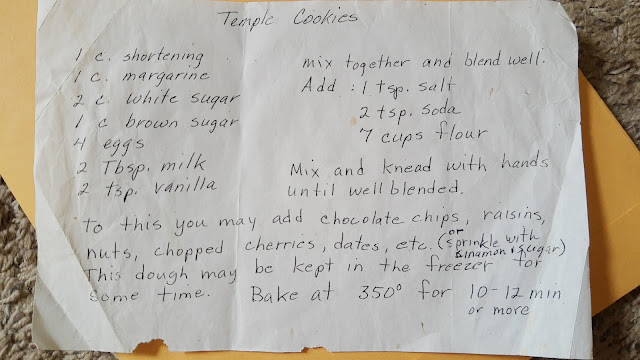 Temple Cookies
1 c. shortening
1 c. margarine
2 c. white sugar
1 c brown sugar
4 eggs
2 Tbsp. milk
2 tsp. vanilla
mix together and blend well.
Add : 1 tsp. salt
2 tsp. soda
7 cups flour
Mix and knead with hands
until well blended.
To this you may add chocolate chips, raisins,
nuts, chopped cherries, dates, etc. (or sprinkle with cinamon & sugar)
This dough may be kept in the freezer for
some time. Bake at 350° for 10-12 min
or more